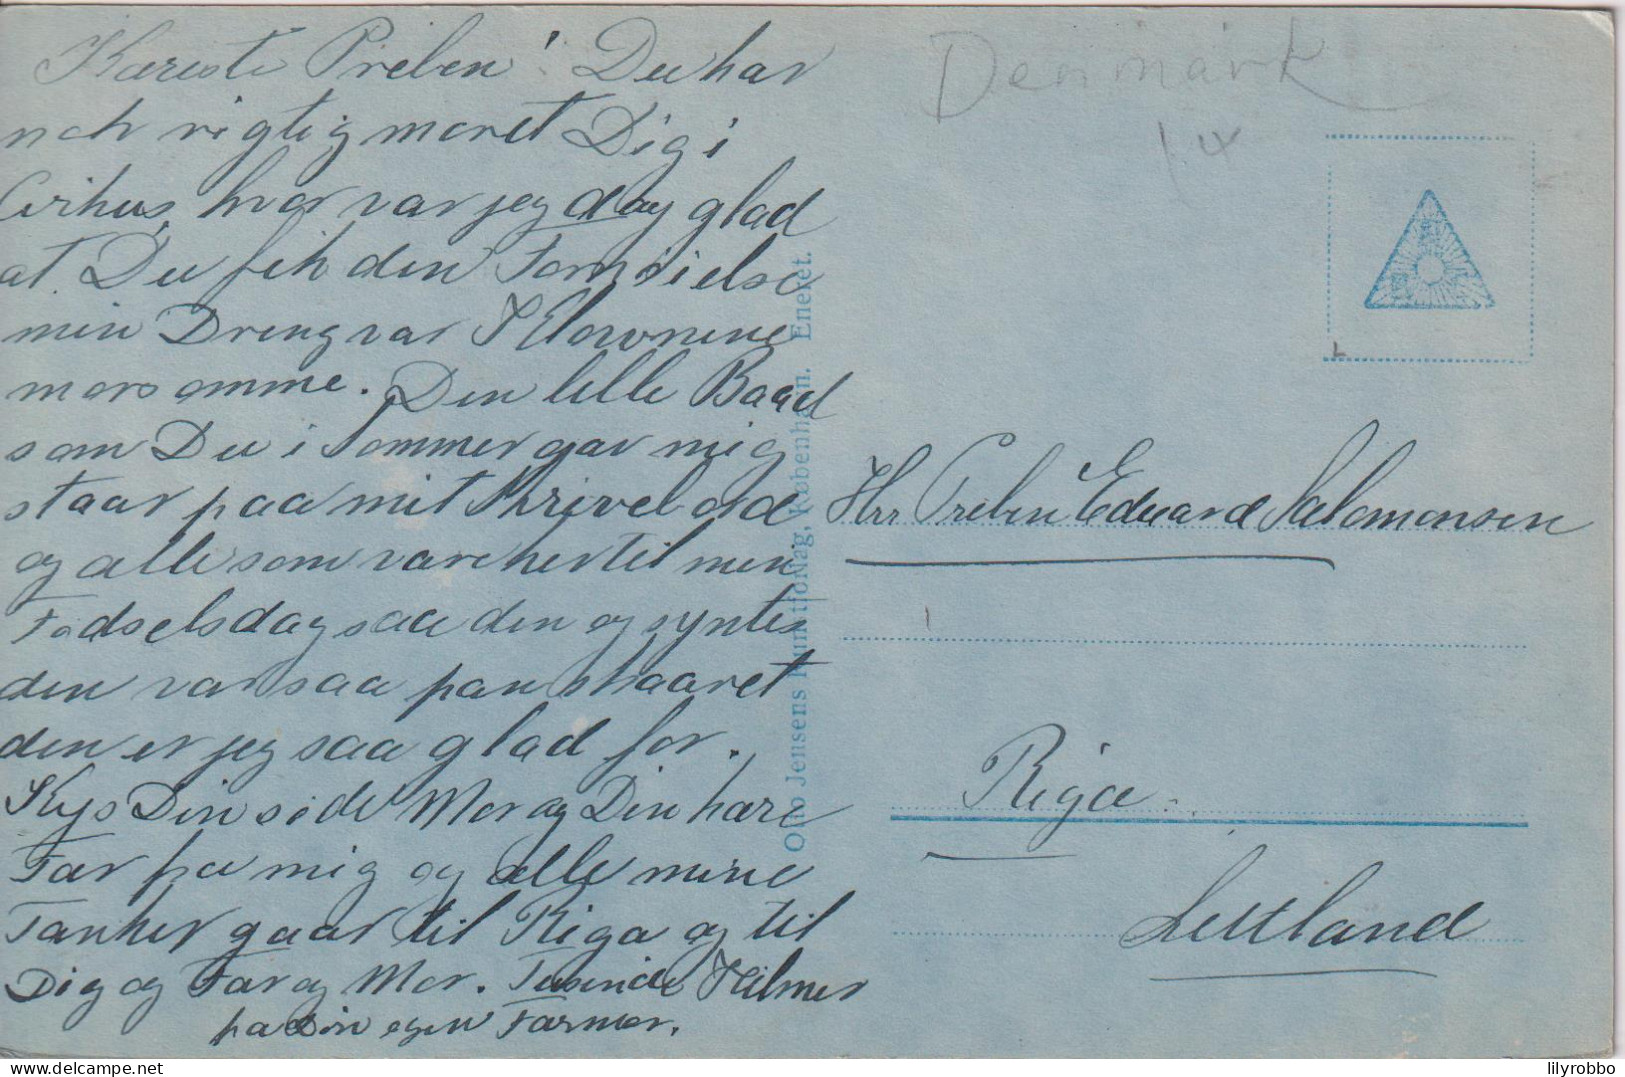 Kæreste Preben! Du har
nok rigtig moret Dig i
Cirkus, hvor var jeg dog glad
at Du fik den Fornøielse
min Dreng var Klovnene
morsomme. Den lille Baad
som Du i Sommer gav mig
staar paa mit Skrivebord
og alle som var her til min
Fødselsdag saa den og syntes
den var saa pan skaaret
den er jeg saa glad for.
Kys Din søde Mor og Din kære
Far fra mig og alle mine
Tanker gaar til Riga og til
Dig og Far og Mor. Tusinde Hilsner
fra Din egen Farmor.
Denmark
Otto Jensens Kunstforlag, København. Eneret.
Hrr Preben Eduard Salomonsen
Riga.
Lettland
lilyrobbo